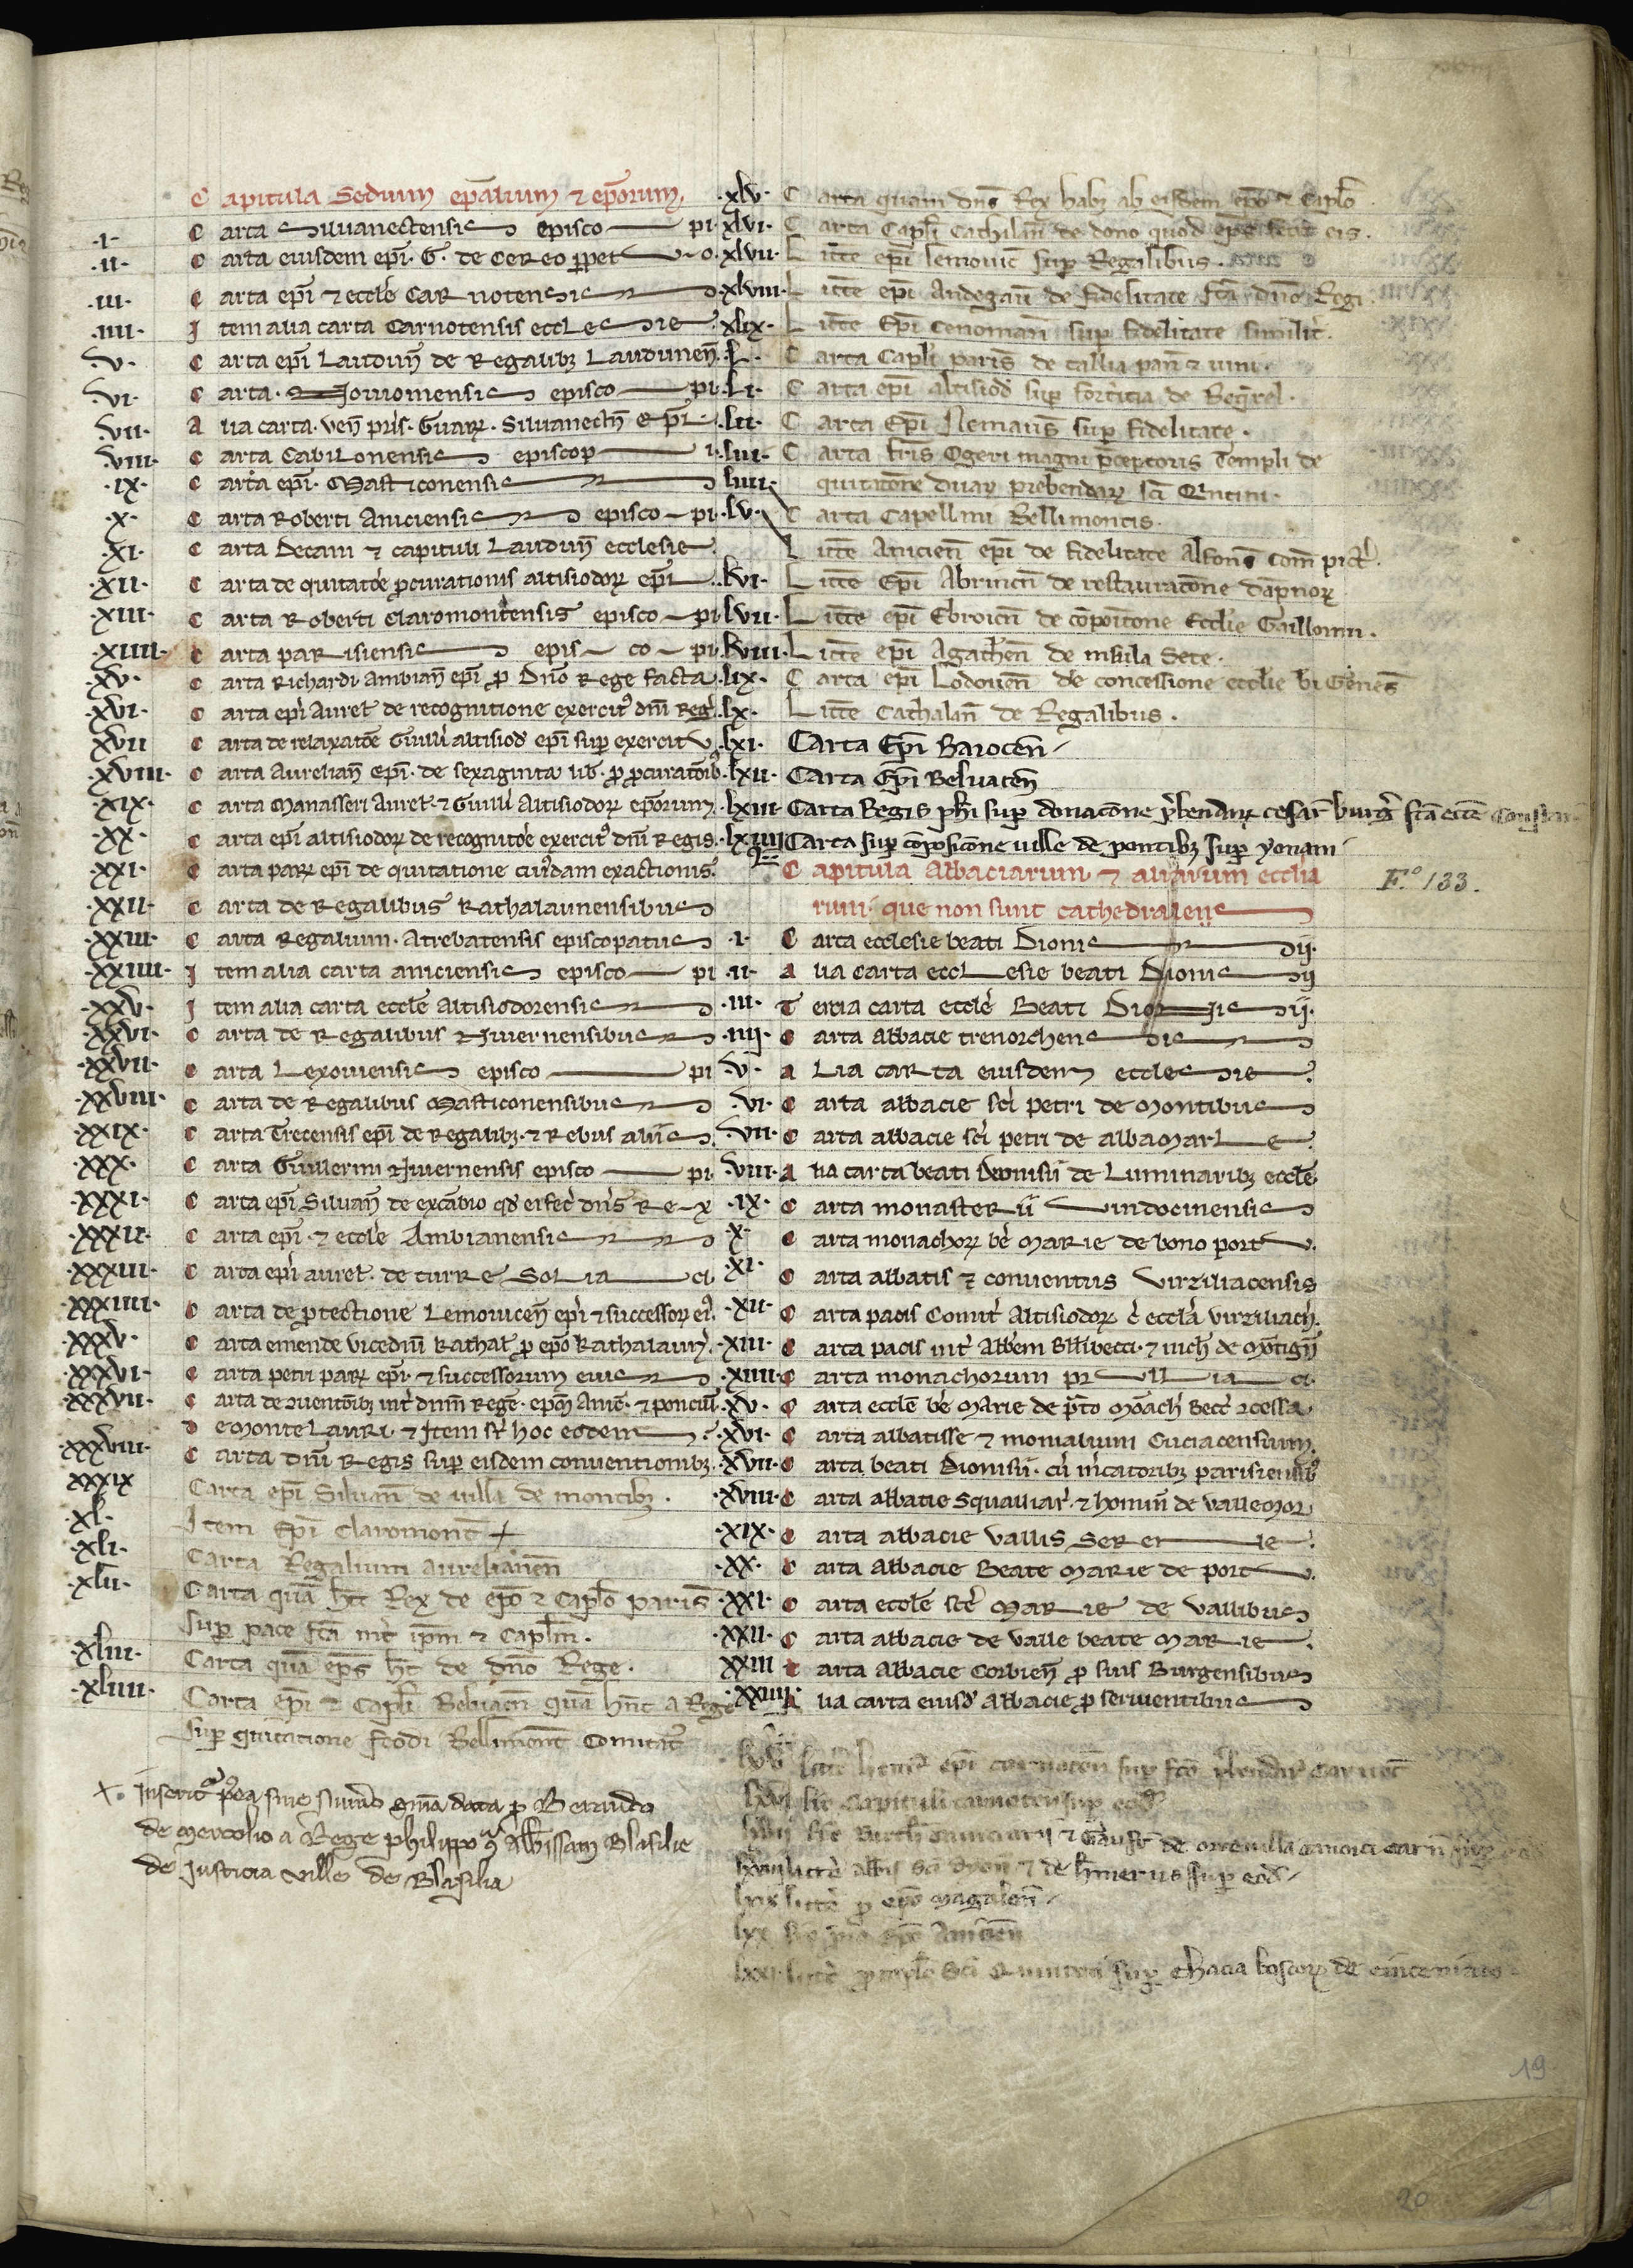 Capitula Sedium ep̄alium ⁊ ep̄orum.
.I. Carta Siluanectensis episcopi
.II. Carta eiusdem ep̄i. G. de Cereo ꝑpetuo.
.III. Carta ep̄i ⁊ eccl̄e Carnotensis
.IIII. Item alia carta Carnotensis ecclesie
.V. Carta ep̄i Laudun̄ de Regalibꝫ Laudunen̄.
.VI. Carta. Nouiomensis episcopi
.VII. Alia carta. ven̄ pr̄is. Guar̄. Siluanectn̄ Ep̄i.
.VIII. Carta Cabilonensis episcopi
.IX. Carta ep̄i. Masticonensis
.X. Carta Roberti Aniciensis episcopi
.XI. Carta Decani ⁊ capituli Laudun̄ ecclesie
.XII. Carta de quitatōe ꝓcurationis altisiodoꝝ ep̄i
.XIII. Carta Roberti Claromontensis episcopi
.XIIII. Carta parisiensis episcopi
.XV. Carta Richardi Ambian̄ ep̄i ꝓ Dn̄o Rege facta
.XVI. Carta ep̄i Aurel̄ de recognitione exercitꝰ dn̄i Reḡ.
.XVII Carta de relaxatōe Guill̄i altisiod̄ ep̄i suꝑ exercitu
.XVIII. Carta Aurelian̄ Ep̄i. de sexaginta lib̄. ꝓ ꝓcuratōibꝰ
.XIX. Carta Manasseri Aurel̄. ⁊ Guill̄i Altisiodoꝝ ep̄orum.
.XX. Carta ep̄i altisiodoꝝ de recognitōe exercitꝰ dn̄i Regis.
.XXI. Carta paꝝ ep̄i de quitatione cuiꝰdam exactionis.
.XXII. Carta de Regalibus Kathalaunensibus
.XXIII. Carta Regalium. Atrebatensis episcopatus
.XXIIII. Item alia carta aniciensis episcopi
.XXV. Item alia carta eccl̄e Altisiodorensis
.XXVI. Carta de Regalibus Niuernensibus
.XXVII. Carta Lexouiensis episcopi
.XXVIII. Carta de Regalibus Masticonensibus
.XXIX. Carta Trecensis ep̄i de Regalibꝫ. ⁊ Rebus aliis
.XXX. Carta Guillermi Niuernensis episcopi
.XXXI. Carta ep̄i Siluan̄ de excābio qd̄ ei fec̄ dn̄s Rex
.XXXII. Carta ep̄i. ⁊ eccl̄e Ambianensis
.XXXIII. Carta ep̄i aurel̄. de turre Solia ci
.XXXIIII. Carta de ꝓtectione Lemouicen̄ ep̄i ⁊ successoꝝ eiꝰ.
.XXXV. Carta emende vicedn̄i Kathal̄ ꝓ ep̄o Kathalaun̄.
.XXXVI. Carta petri paꝝ ep̄i. ⁊ successorum eius
.XXXVII. Carta de ɔuentōibꝫ int̄ dn̄m Regē. ep̄m Anic̄. ⁊ ponciū
de Monte Lauri. ⁊ Item suꝑ hoc eodem
.XXXVIII. Carta dn̄i Regis suꝑ eisdem conuentionibꝫ.
XXXIX Carta ep̄i Siluan̄ de villa de montibꝫ.
.XL. Item Ep̄i Claromont̄ +
.XLI. Carta Regalium aurelianen̄
.XLII. Carta quā ht̄ Rex de ep̄o ⁊ Capl̄o paris̄
suꝑ pace fc̄a int̄ ip̄m ⁊ Capl̄m.
.XLIII. Carta quā ep̄s ht̄ de dn̄o Rege.
.XLIIII. Carta ep̄i ⁊ Capl̄i Beluacn̄ quā hn̄t a Rege
suꝑ quitatione feodi Bellimont̄ Comitat̄
+. Inserit̄ p̄ea sine numero data ꝑ Beraudo
de Mercolio a Rege Philippo Abb̄issam Blasilie
de Justicia ville de Blasilia
.XLV. Carta quam dn̄s Rex habꝫ ab eisdem ep̄o ⁊ Capl̄o
.XLVI. Carta Capl̄i Cathalan̄ de dono quod ep̄s fecit eis.
.XLVII. Litt̄e ep̄i lemouic̄ suꝑ Regalibus.
.XLVIII. Litt̄e ep̄i Andegau̅ de fidelitate fc̄a dn̄o Regi
.XLIX. Litt̄e Ep̄i Cenoman̄ suꝑ fidelitate simil̄r.
.L. Carta Capl̄i paris̄ de tallia pan̄ ⁊ uini.
.LI. Carta ep̄i altisiod̄ suꝑ fortitia de Regn̄el.
.LII. Carta Ep̄i Nemaus̄ suꝑ fidelitate.
.LIII. Carta fr̄is Ogeri magni p̄ceptoris Templi de
quitatōne duaꝝ prebendaꝝ sc̄i Qͥntini.
LIIII. Carta Capellini Bellimontis.
.LV. Litt̄e Anicien̄ ep̄i de fidelitate Alfons̄ Com̄ pict̄.
.LVI. Litt̄e Ep̄i Abrincn̄ de restauratōne dāpnoꝝ
.LVII. Litt̄e ep̄i Ebroicn̄ de cōpoitōne Eccl̄ie Gaillonn̄.
.LVIII. Litt̄e ep̄i Agathen̄ de insula Sete.
.LIX. Carta ep̄i Lodouen̄ de concessione eccl̄ie bi Genes̄
.LX. Litt̄e Cathalan̄ de Regalibus.
.LXI. Carta Ep̄i Baiocen̄
.LXII. Carta Ep̄i Beluacen̄
.LXIII. Carta Regis phi suꝑ donacōne p̄bendaꝝ cesar̄ burḡ fc̄a
.LXIIII. Carta suꝑ cōposicōne uille de pontibꝫ suꝑ yonam
Capitula Abbaciarum ⁊ aliarum ecclia
F.º 133.
rum. que non sunt cathedrales
.I. Carta ecclesie beati Dionisii.
.II. Alia Carta ecclesie beati Dionisii
.III. Tercia carta eccl̄e Beati Dionisii.
.IIII. Carta abbacie trenorchensis
.V. Alia carta eiusdem ecclesie
.VI. Carta abbacie sc̄i petri de Montibus
.VII. Carta abbacie sc̄i petri de albaMarle
.VIII. Alia carta beati Deonisii de Luminaribꝫ eccl̄e
.IX. Carta monasterii Vindocinensis
.X. Carta monachoꝝ bē Marie de bono portu.
.XI. Carta abbatis ⁊ conuentus Virziliacensis
.XII. Carta pacis Comit̄ Altisiodoꝝ c̄ eccl̄a virziliach̄.
.XIII. Carta pacis int̄ Abb̄em Bellibecci. ⁊ mich̄ de Mōtign̄
.XIIII. Carta monachorum prulliaci
.XV. Carta eccl̄e bē Marie de p̄to Mōach̄ Becc̄ ɔcessa
.XVI. Carta abbatisse ⁊ monialium Cuciacensium.
.XVII. Carta beati Dionisii. cū m̄catoribꝫ parisiensibꝰ
.XVIII. Carta abbatie Squalliaꝝ ⁊ homin̄ de valleMor
.XIX. Carta abbacie vallis Serene
.XX. Carta abbacie Beate Marie de portu.
.XXI. Carta eccl̄e sc̄e Marie de Vallibus
.XXII. Carta abbacie de Valle beate Marie
.XXIII Carta Abbacie Corbien̄ ꝓ suis Burgensibus
.XXIIII Alia carta eiusd̄ Abbacie ꝓ seruientibus
LXV litt̄e henr̄ ep̄i carnoten̄ suꝑ fc̄o p̄bendaꝝ Carnot̄
LXVI litt̄e Capituli carnoten̄ suꝑ eod̄
LXVII litt̄e ⁊ de canonici carn̄
LXVIII litt̄e abb̄is sc̄i ⁊ de suꝑ eod̄
LXIX litt̄e ꝓ ep̄o Magalon̄
LXX ep̄o Anicien̄
LXXI litt̄e ꝓ capl̄o sc̄i Quintini suꝑ chacia boscoꝝ de
19
20
21